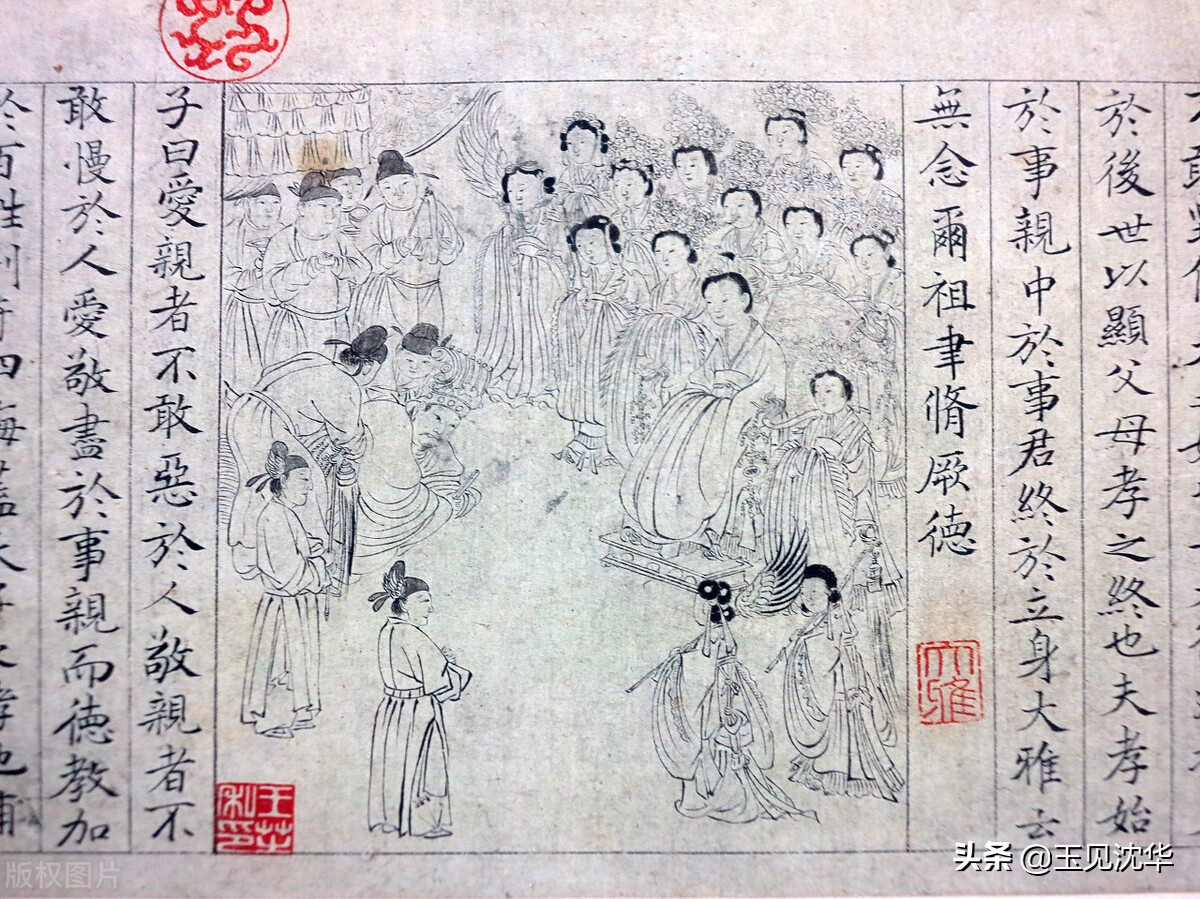 於後世以顯父母孝之終也夫孝始
於事親中於事君終於立身大雅云
無念爾祖聿脩厥德
子曰愛親者不敢惡於人敬親者不
敢慢於人愛敬盡於事親而德教加
於百姓刑于四海蓋天子之孝也甫
版权图片
头条 @玉见沈华